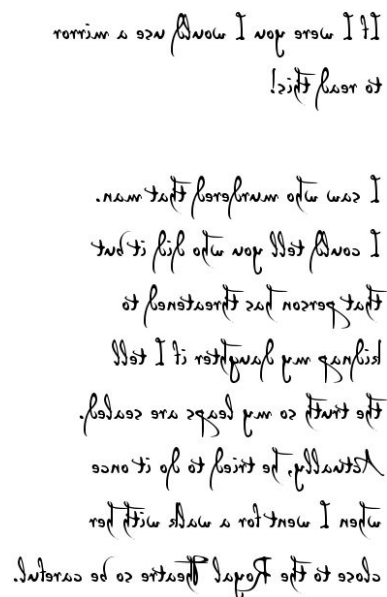 If I were you I would use a mirror
to read this!
I saw who murdered that man.
I could tell you who did it but
that person has threatened to
kidnap my daughter if I tell
the truth so my leaps are sealed.
Actually, he tried to do it once
when I went for a walk with her
close to the Royal Theatre so be careful.